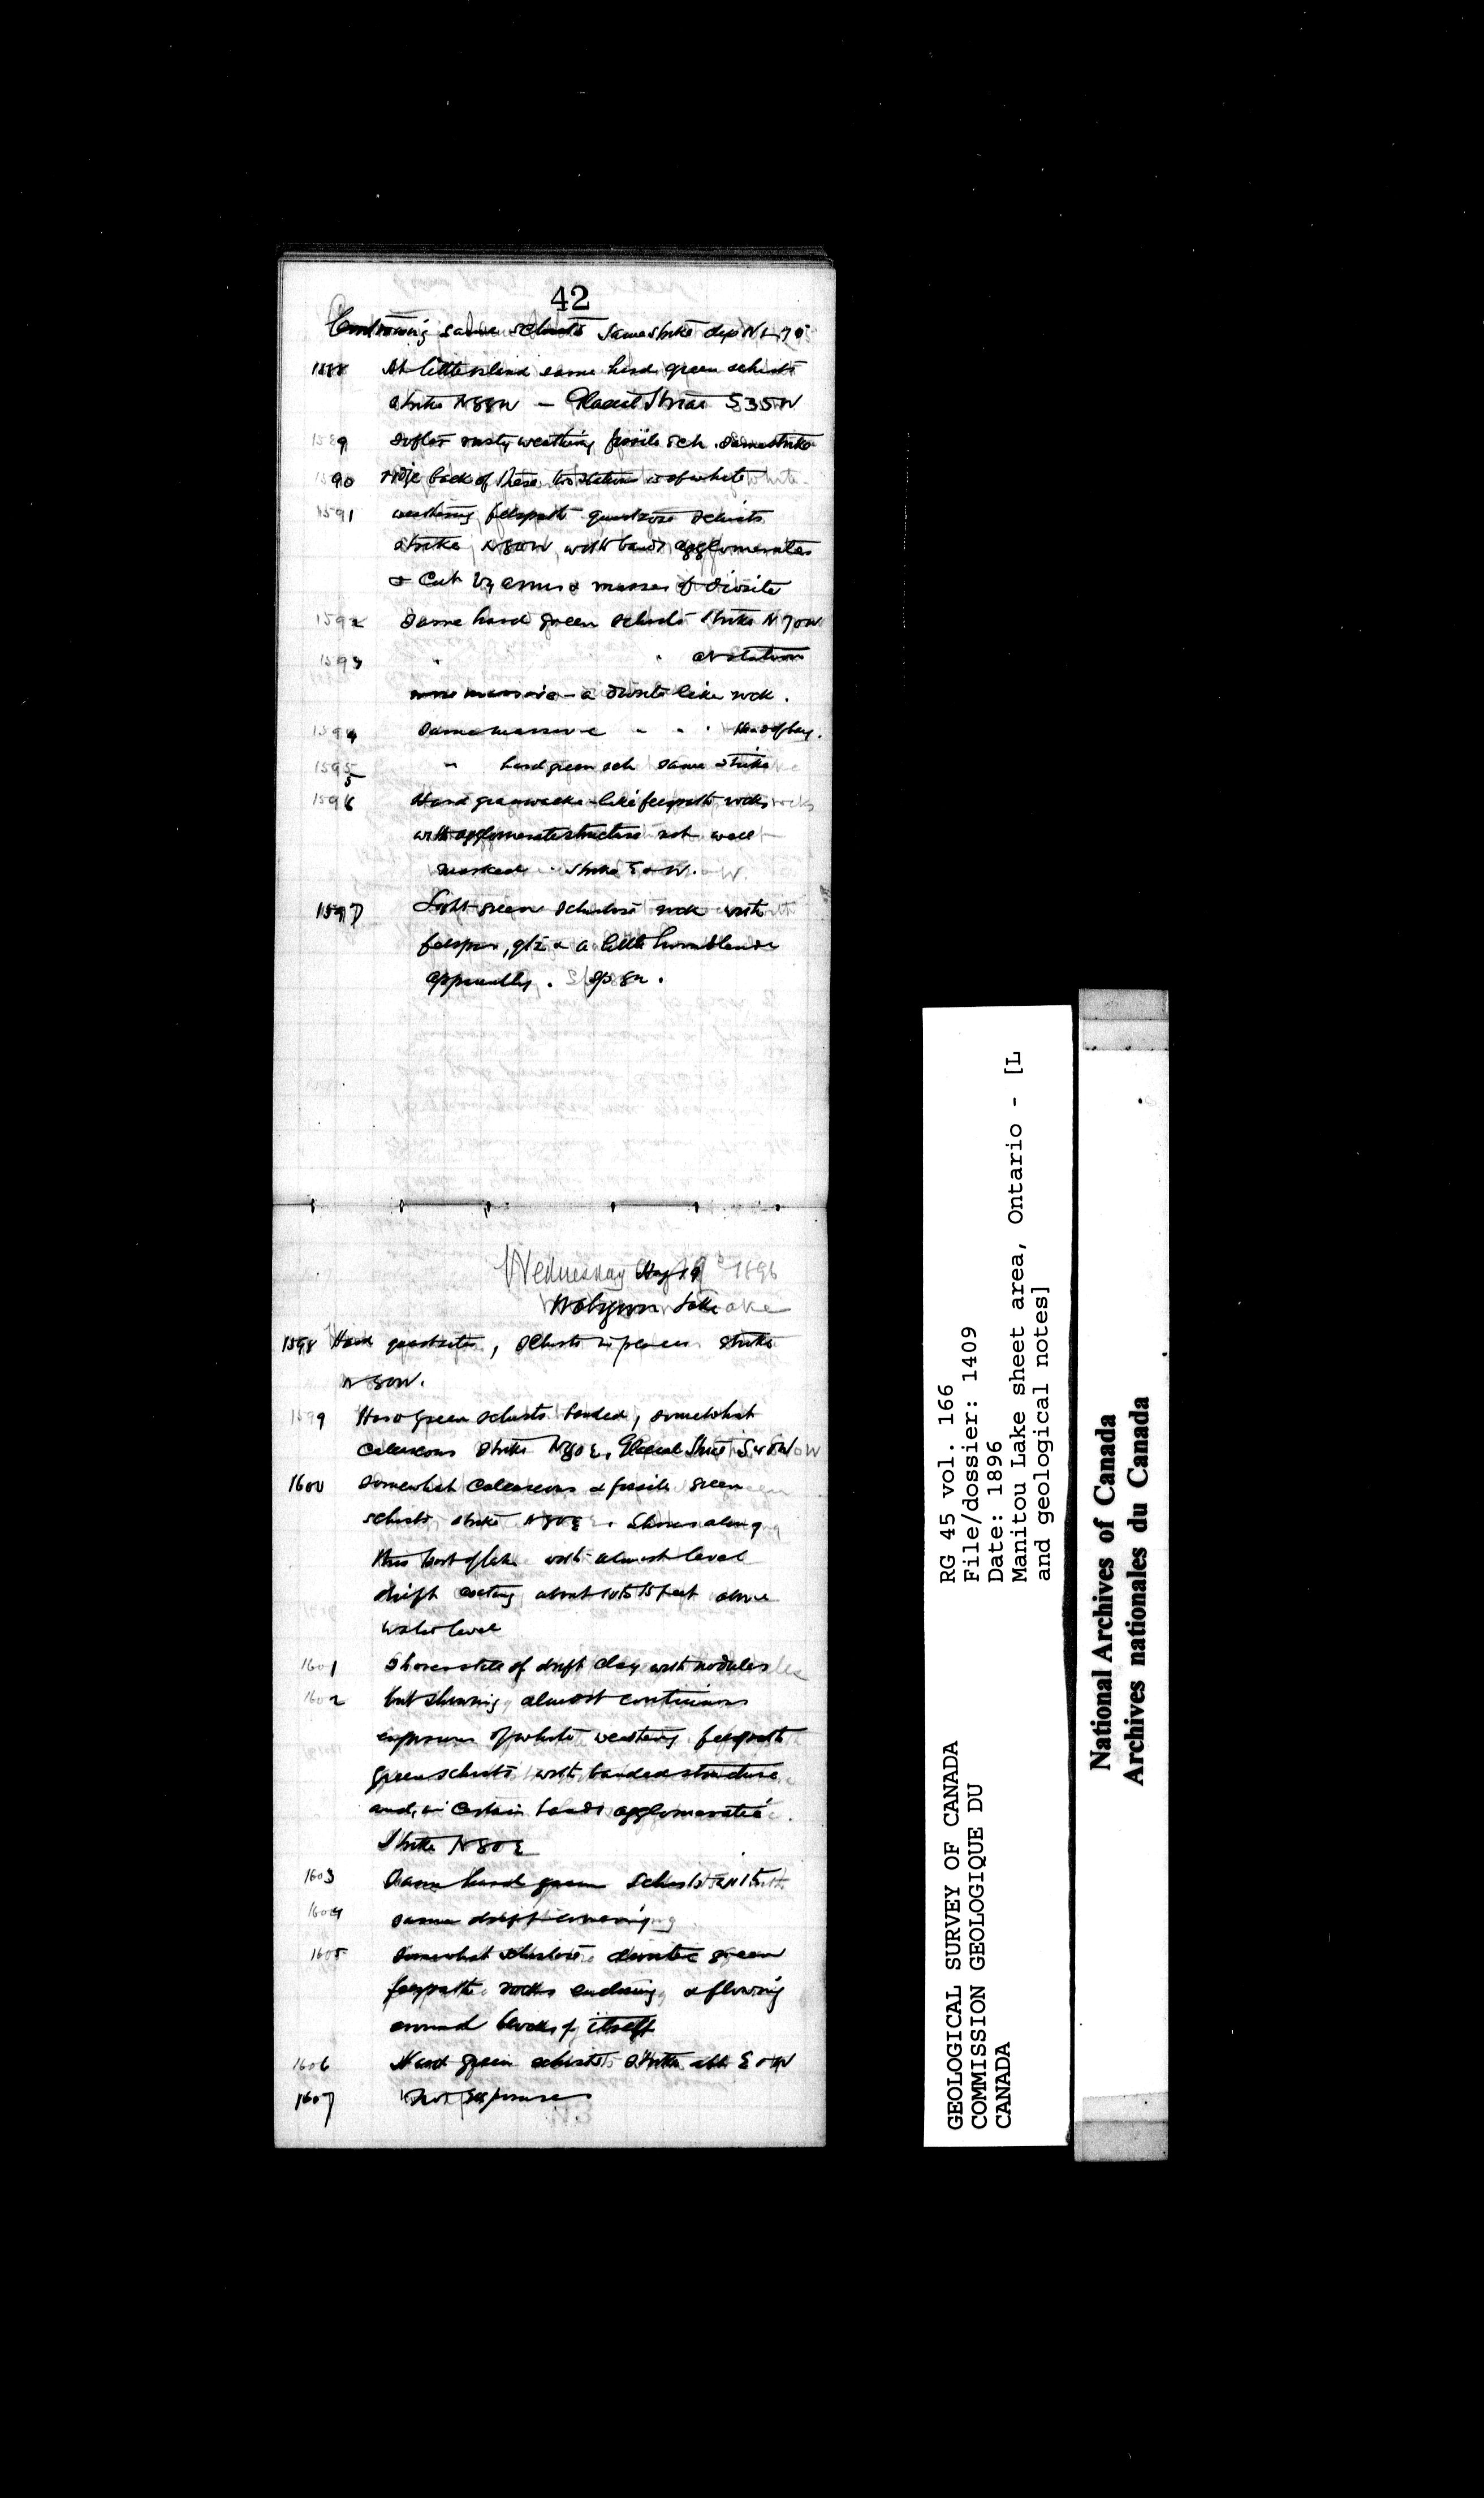 42
Continuing same schists same strike dip N < 75
1588 At little island same hard green schists
strike N88W — Glacial Striae S35W
1589 Softer rusty weathing fissile sch. same strike
90 ridge back of these two stations is of white
1591 weathering felspath quartzose schists
strike N80W, with bands agglomerates
& cut by & masses of diorite
1592 Same hard green schists strike N70W
1593 " " at station
more massive - a diorite like rock.
1594 Same massive " " " Head of bay.
1595 " hard green sch same strike
1596 Hard grauwacke-like felspath rocks
with agglomerate structure not well
marked. Strike E & W.
1597 Light green schistose rock with
felspar, qtz & a little hornblende
apparently. Sp 82.
Wednesday 19 1896
Wabigoon Lake
1598 Hard quartzites, schists in places strike
N80W.
1599 Hard green schists banded, somewhat
calcareous strike N80E, Glacial Striae S40W
1600 Somewhat calcareous & fissile green
schists strike N80E. Shores along
this part of lake with almost level
drift coating about 10 to 15 feet above
water level
1601 Shores still of drift clay with nodules
1602 but showing almost continuous
exposures of white weathering felspath
green schists with banded structure
and, in certain bands agglomeratic.
Strike N80E
1603 Same hard green schists
1604 same drift covering
1605 Somewhat schistose dioritic green
felspathic rocks enclosing & flowing
around blocks of itself
1606 Hard green schists strike abt E & W
1607 exposure
RG 45 vol. 166
File/dossier: 1409
Date: 1896
Manitou Lake sheet area, Ontario - [L
and geological notes]
GEOLOGICAL SURVEY OF CANADA
COMMISSION GEOLOGIQUE DU
CANADA
National Archives of Canada
Archives nationales du Canada